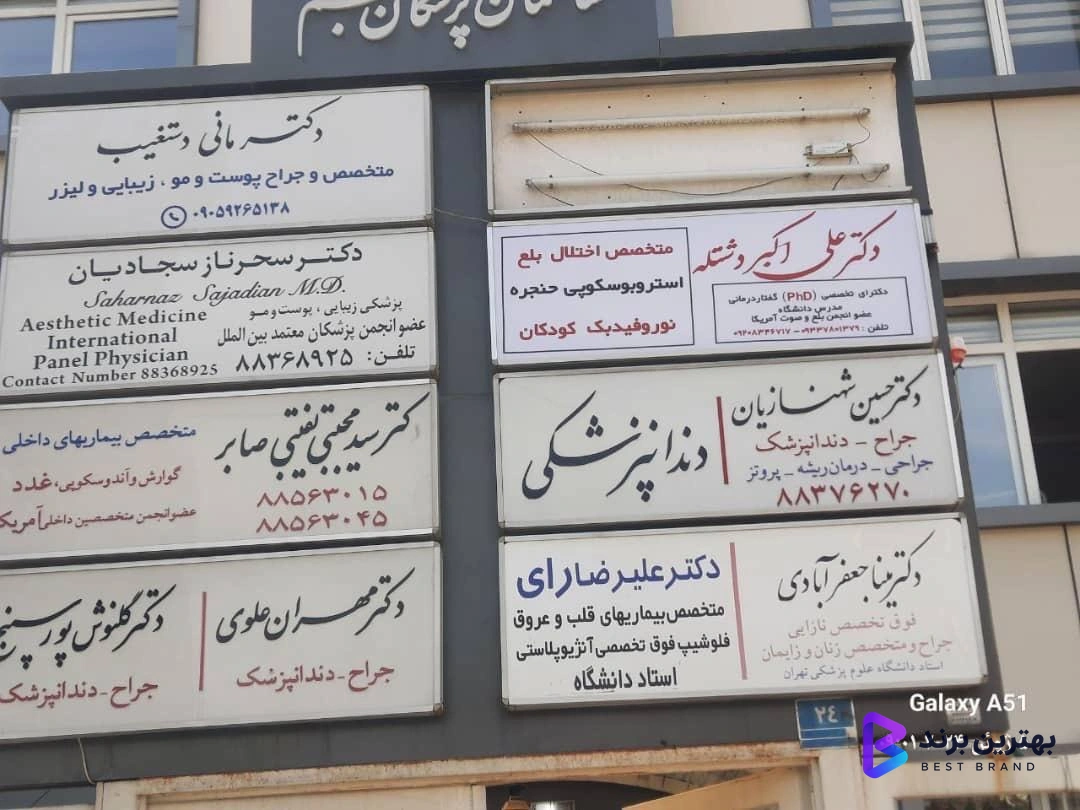 ساختمان پزشکان
دکتر مانی دستغیب
متخصص و جراح پوست و مو ، زیبایی و لیزر
۰۹۰۵۹۲۶۵۱۳۸
دکتر سحرناز سجادیان
Saharnaz Sajadian M.D.
Aesthetic Medicine
International
Panel Physician
Contact Number 88368925
پزشکی زیبایی ، پوست و مو
عضو انجمن پزشکان معتمد بین الملل
تلفن: ۸۸۳۶۸۹۲۵
دکتر سید مجتبی تفتیتی صابر
متخصص بیماریهای داخلی
گوارش و آندوسکوپی، غدد
عضو انجمن متخصصین داخلی آمریکا
۸۸۵۶۳۰۱۵
۸۸۵۶۳۰۴۵
دکتر مهران علوی
جراح - دندانپزشک
دکتر گلنوش پور
جراح - دندانپزشک
دکتر علی اکبر دشتله
دکترای تخصصی (PhD) گفتاردرمانی
مدرس دانشگاه
عضو انجمن بلع و صوت آمریکا
تلفن : ۰۹۳۳۷۸۰۱۳۷۹ - ۰۹۲۰۸۳۴۶۷۱۷
متخصص اختلال بلع
استروبوسکوپی حنجره
نوروفیدبک کودکان
دکتر حسین شهنازیان
جراح - دندانپزشک
جراحی - درمان ریشه - پروتز
۸۸۳۷۶۲۷۰
دندانپزشکی
دکتر مینا جعفرآبادی
فوق تخصص نازایی
جراح و متخصص زنان و زایمان
استاد دانشگاه علوم پزشکی تهران
دکتر علیرضا رای
متخصص بیماریهای قلب و عروق
فلوشیپ فوق تخصصی آنژیوپلاستی
استاد دانشگاه
۲۴
Galaxy A51
بهترین برند
BEST BRAND